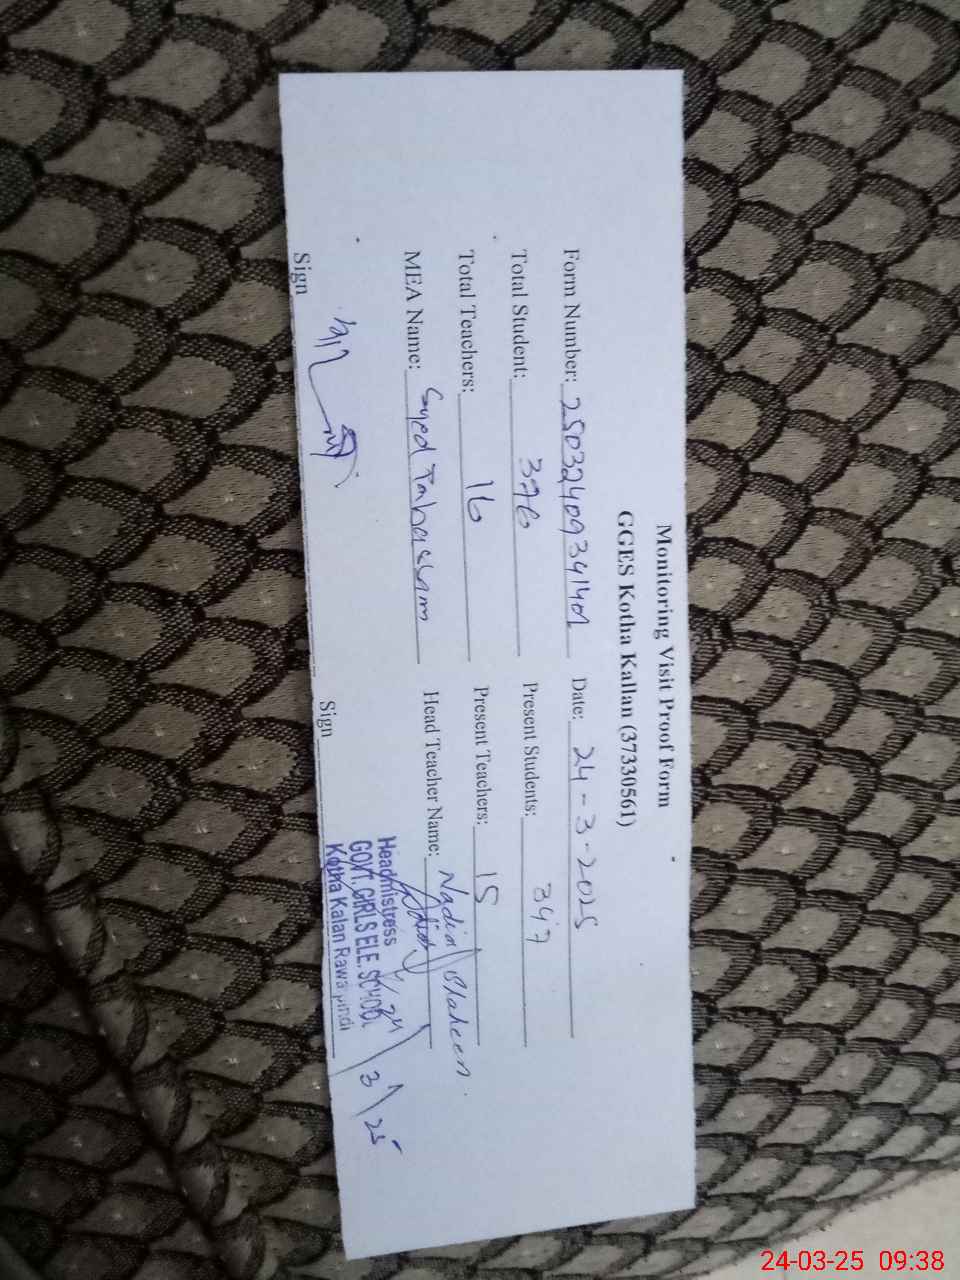 Monitoring Visit Proof Form
GGES Kotha Kallan (37330561)
Form Number: 250324093414 Date: 24-3-2025
Total Student: 376 Present Students: 347
Total Teachers: 16 Present Teachers: 15
MEA Name: Syed Tabassam Head Teacher Name: Nadia Shaheen
Headmistress
GOVT. GIRLS ELE. SCHOOL
Kotha Kalan Rawalpindi
24/3/25
Sign Sign
24-03-25 09:38